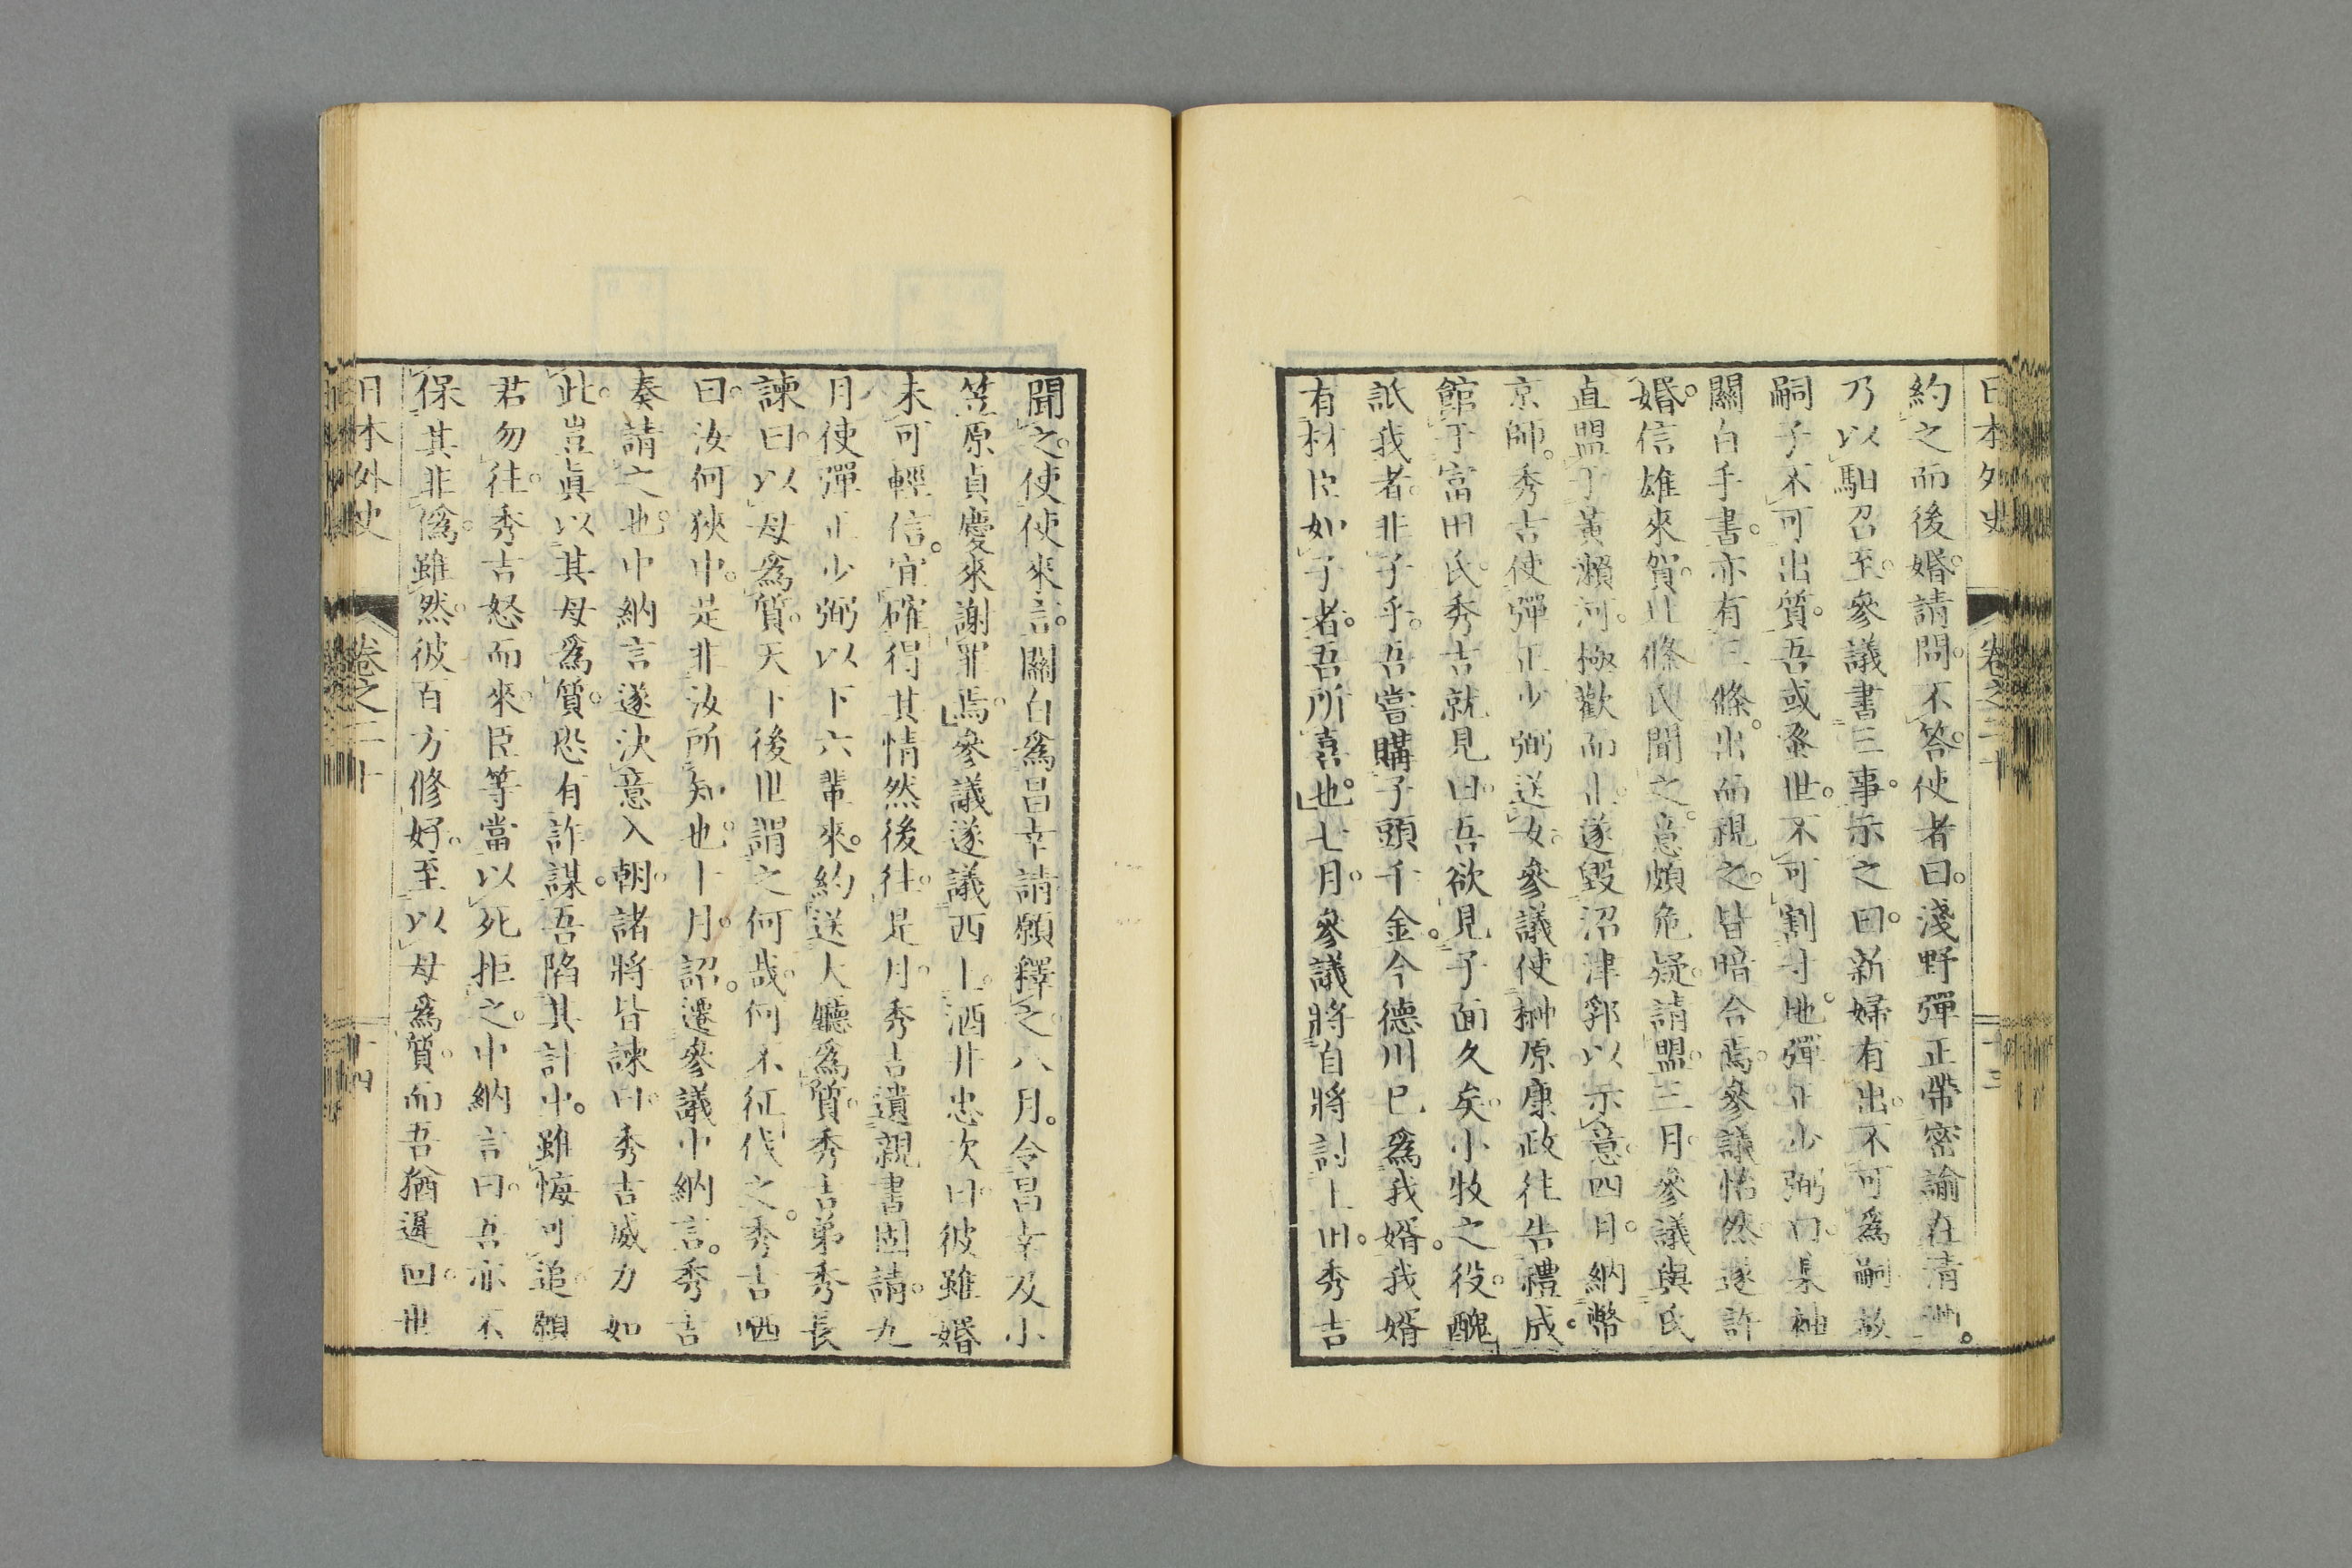 日本外史 卷之二十 十三
約之而後婚。請問。不答。使者曰。淺野彈正帶密諭在清洲。
乃以馹召至。參議書三事。示之曰。新婦有出。不可爲嗣。故
嗣子不可出質。吾或蚤世。不可割寸地。彈正少弼曰。某袖
關白手書。亦有三條。出而視之。皆暗合焉。參議怡然遂許
婚。信雄來賀。北條氏聞之。意頗危疑。請盟。三月。參議與氏
直盟于黃瀨河。極歡而止。遂毀沼津郭以示意。四月。納幣
京師。秀吉使彈正少弼送女。參議使榊原康政往告禮成。
館于富田氏。秀吉就見曰。吾欲見子面久矣。小牧之役。醜
詆我者。非子乎。吾嘗購子頭千金。今德川已爲我婿。我婿
有材臣如子者。吾所喜也。七月。參議將自將討上田。秀吉
聞之。使使來言。關白爲昌幸請願釋之。八月。令昌幸及小
笠原貞慶來謝罪焉。參議遂議西上。酒井忠次曰。彼雖婚
未可輕信。宜確得其情然後往。是月。秀吉遺親書固請。九
月使彈正少弼以下六輩來。約送大廳爲質。秀吉弟秀長
諫曰。以母爲質。天下後世謂之何哉。何不征伐之。秀吉哂
曰。汝何狹中。是非汝所知也。十月。詔遷參議中納言。秀吉
奏請之也。中納言遂決意入朝。諸將皆諫曰。秀吉威力如
此。豈眞以其母爲質。恐有詐謀。吾陷其計中。雖悔可追。願
君勿往。秀吉怒而來。臣等當以死拒之。中納言曰。吾亦不
保其非僞。雖然。彼百方修好。至以母爲質。而吾猶遲回。世
日本外史 卷之二十 十四